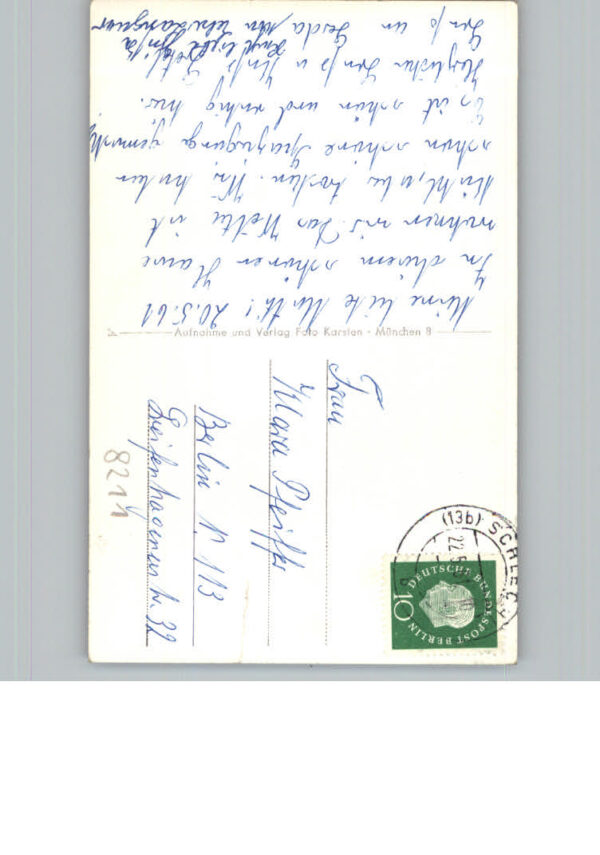 Meine liebe Mutti! 20.5.61
In diesem schönen Hause
wohnen wir. Das Wetter ist
kühl, aber trocken. Wir haben
schon schöne Spaziergänge gemacht
Es ist schön und ruhig hier.
Herzlichen Gruß u Kuß
Gruß an Gerda,
Aufnahme und Verlag Foto Karsten - München 8
Frau
Klara Pfeiffer
Berlin N. 113
Greifenhagener Str. 32
8214
(13b) SCHLECH
DEUTSCHE BUNDESPOST BERLIN
10